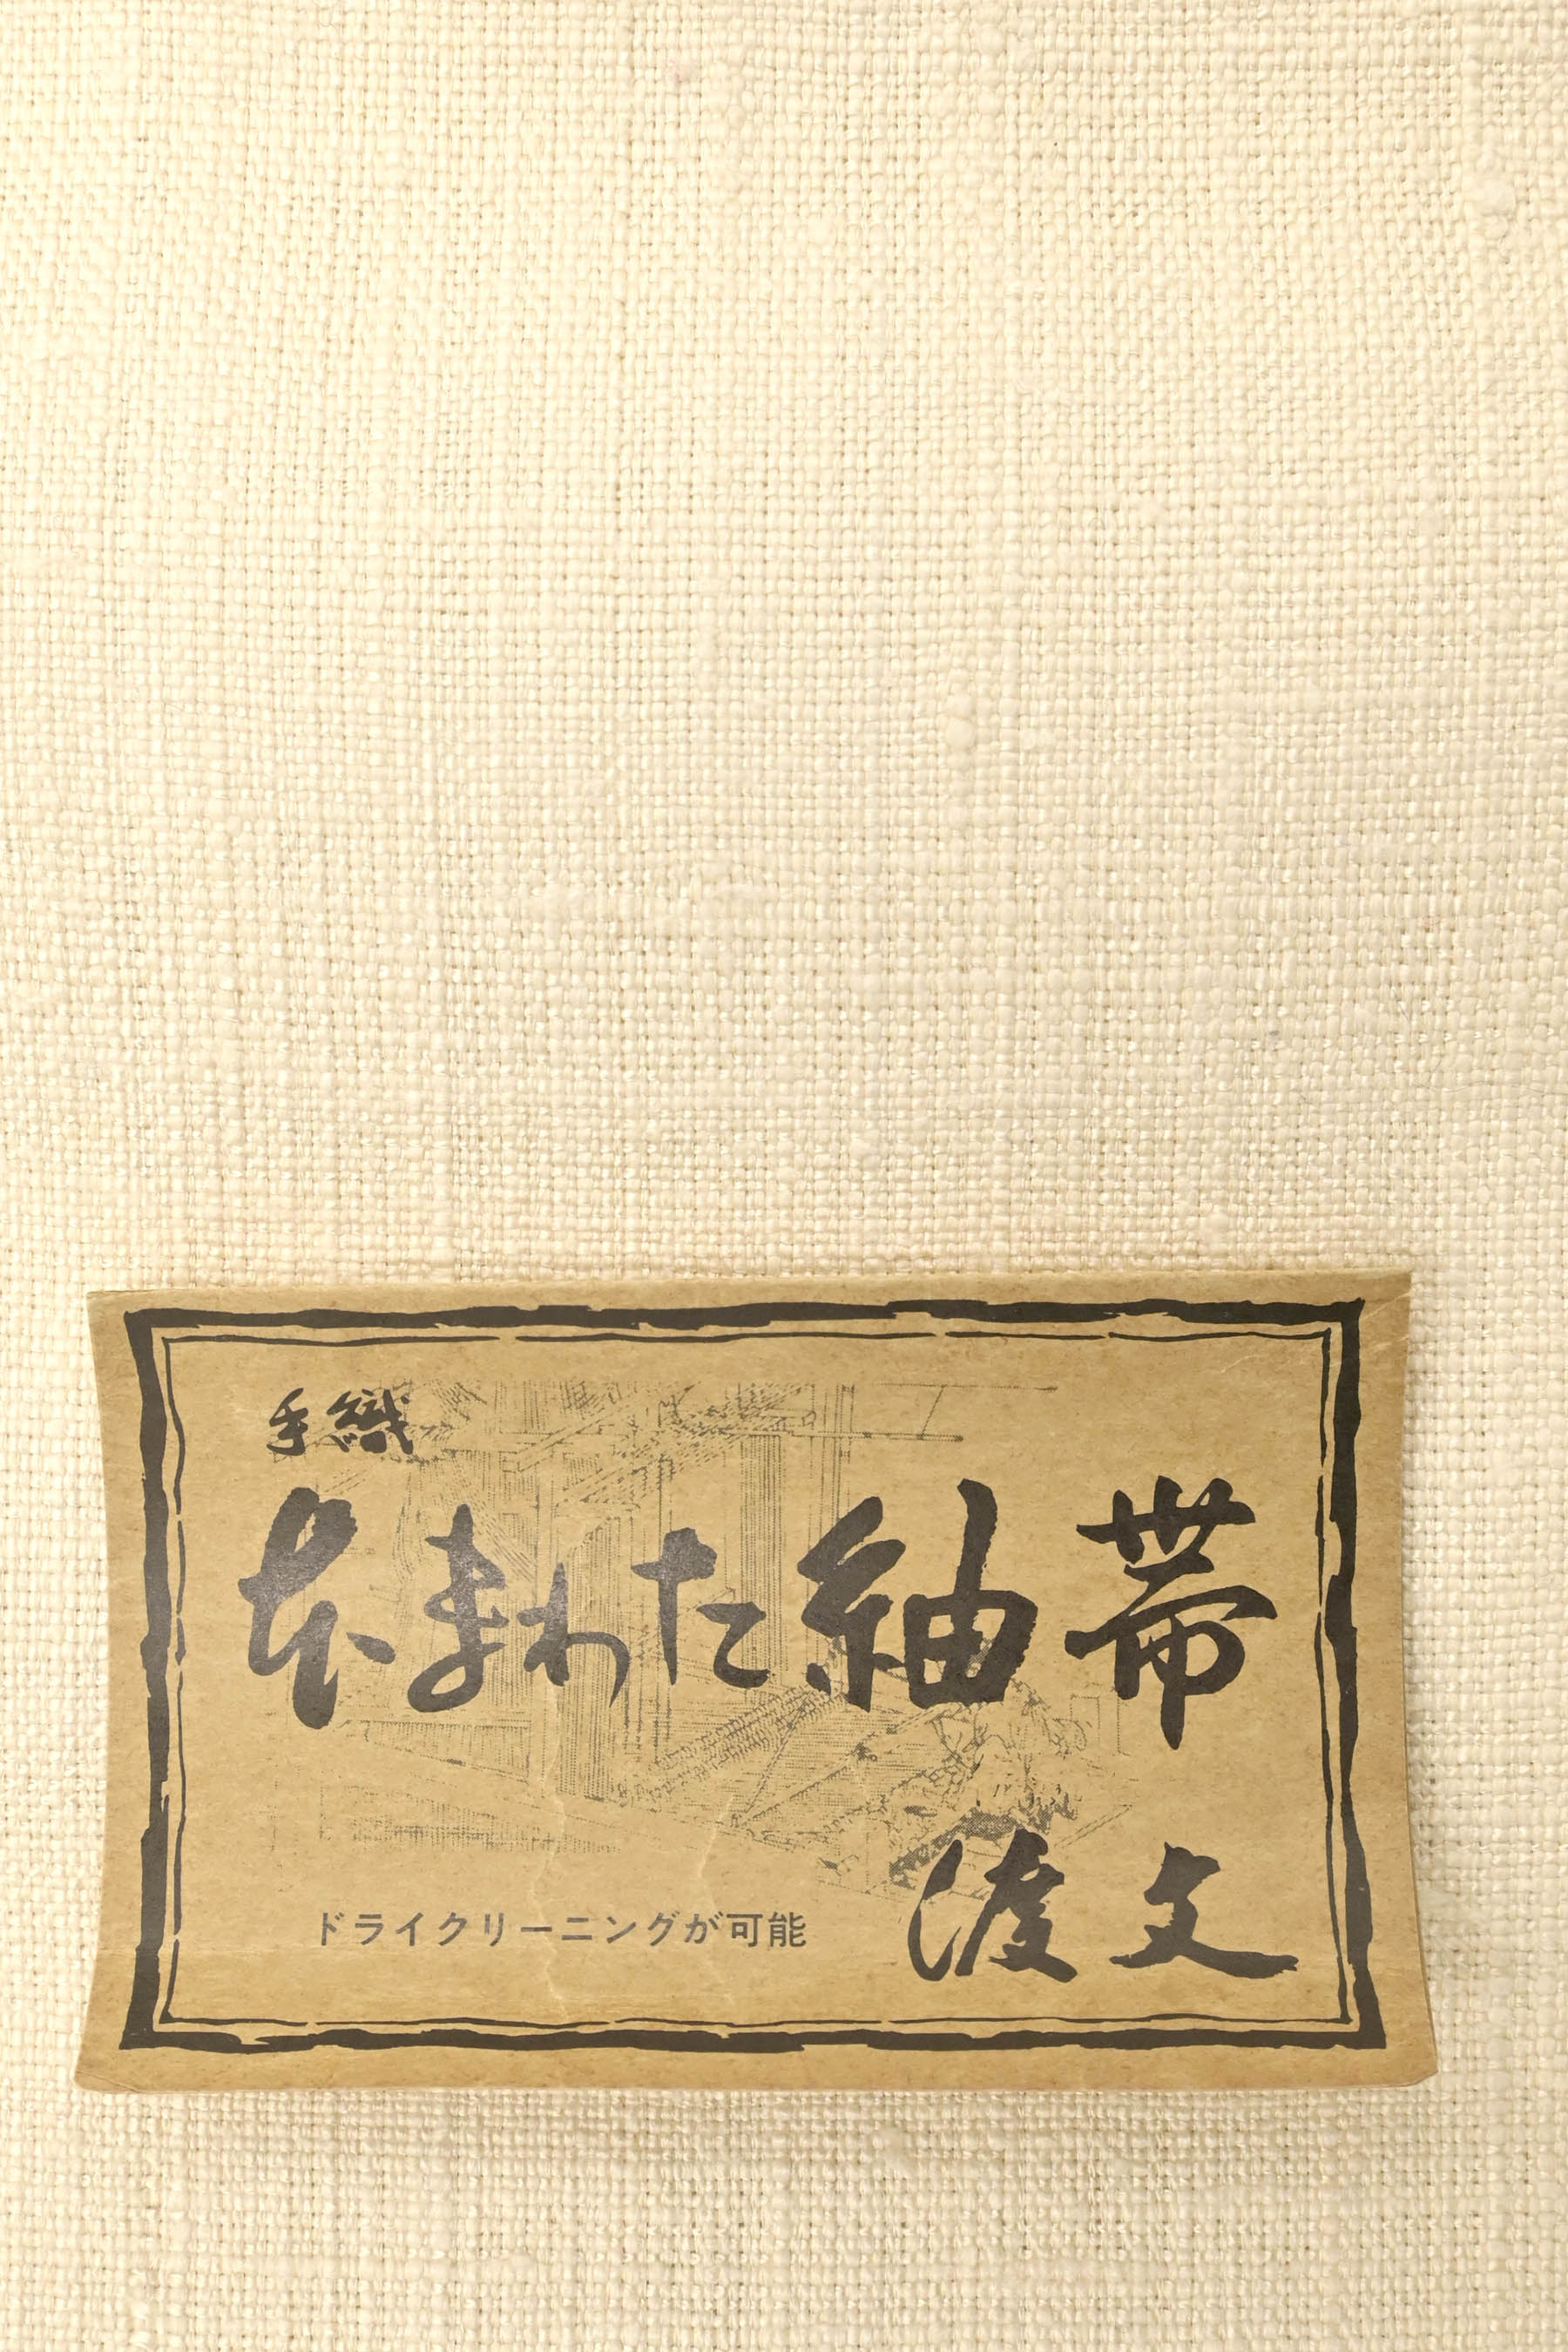 手織
本まわた紬帯
渡文
ドライクリーニングが可能